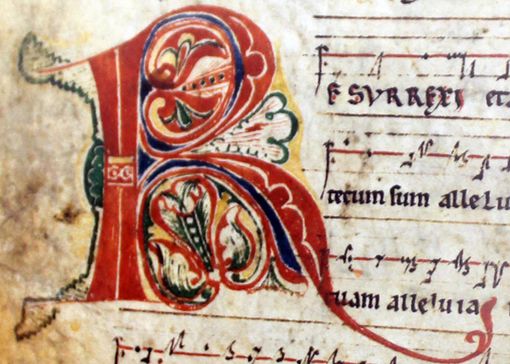 R E SVRREXI et
tecum sum alleLu
tuam alleluia